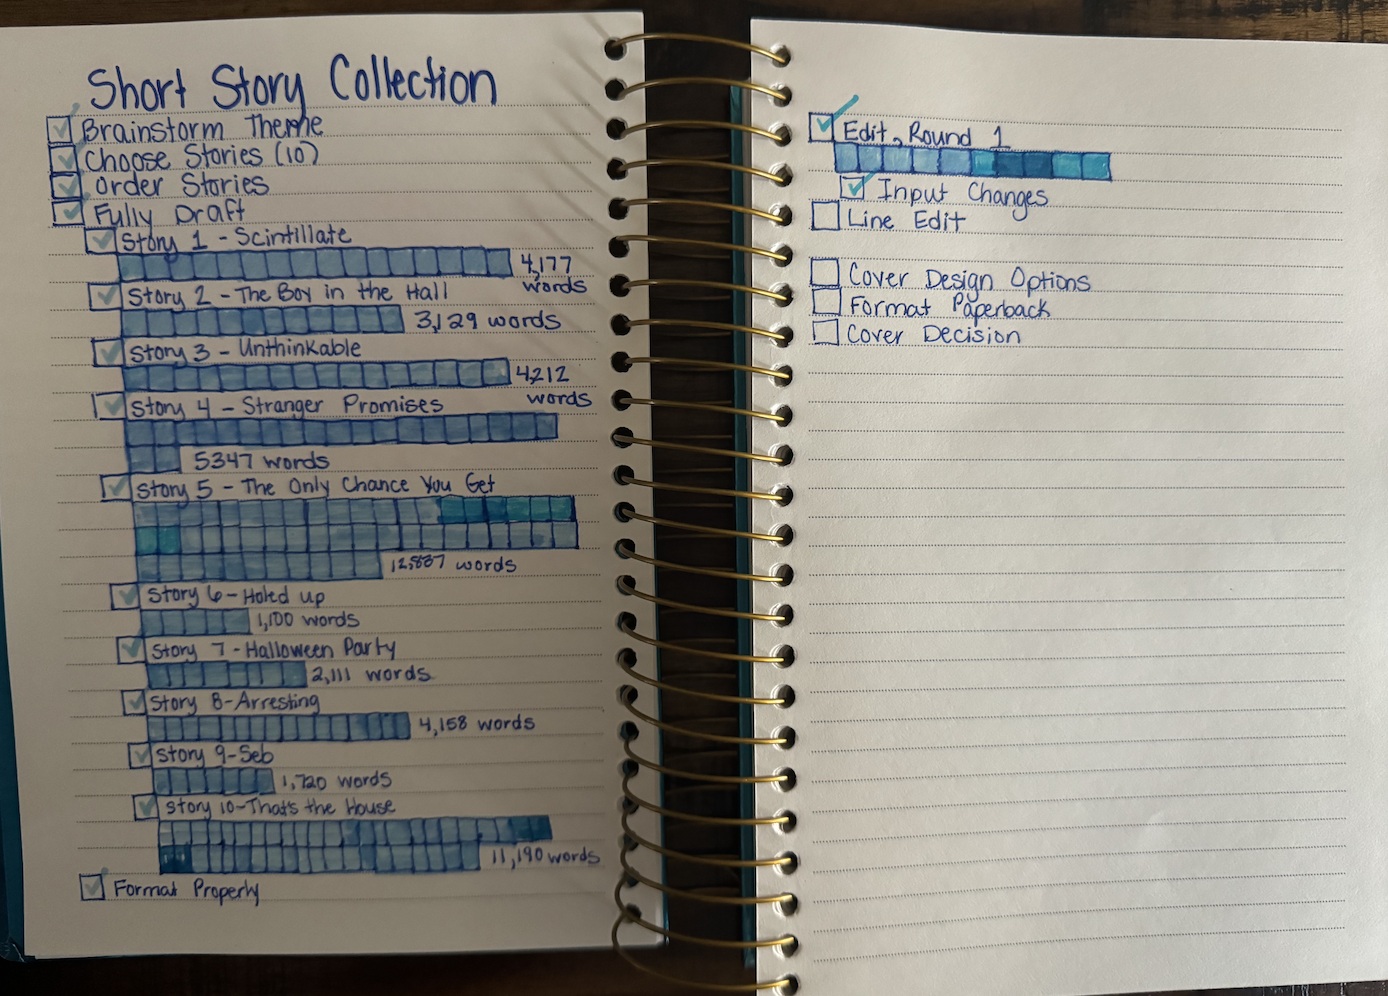 Short Story Collection
Brainstorm Theme
Choose Stories (10)
Order Stories
Fully Draft
Story 1 - Scintillate
4,177
words
Story 2 - The Boy in the Hall
3,129 words
Story 3 - Unthinkable
4,212
words
Story 4 - Stranger Promises
5347 words
Story 5 - The Only Chance You Get
words
Story 6 - Holed up
1,100 words
Story 7 - Halloween Party
2,111 words
Story 8 - Arresting
4,158 words
Story 9 - Seb
1,720 words
Story 10 - That's the House
11,190 words
Format Properly
Edit, Round 1
Input Changes
Line Edit
Cover Design Options
Format Paperback
Cover Decision